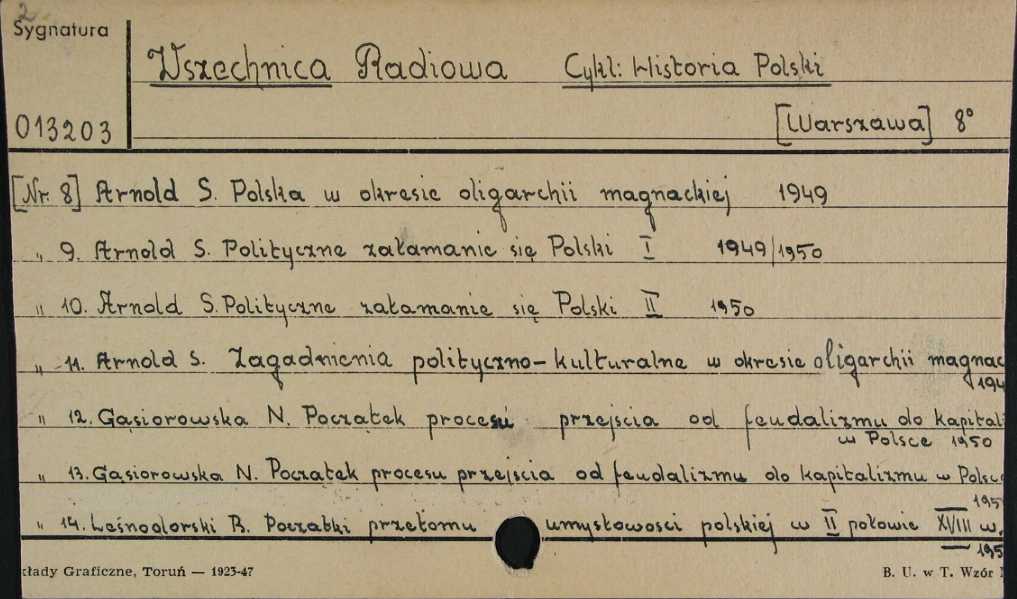 2
Sygnatura
Wszechnica Radiowa Cykl: Historia Polski
013203
[Warszawa] 8°
[Nr. 8] Arnold S. Polska w okresie oligarchii magnackiej 1949
„ 9. Arnold S. Polityczne załamanie się Polski I 1949/1950
„ 10. Arnold S. Polityczne załamanie się Polski II 1950
„ 11. Arnold S. Zagadnienia polityczno-kulturalne w okresie oligarchii magnac
194
„ 12. Gąsiorowska N. Początek procesu przejścia od feudalizmu do kapitali
w Polsce 1950
„ 13. Gąsiorowska N. Początek procesu przejścia od feudalizmu do kapitalizmu w Polsce
195
„ 14. Leśnodorski B. Początki przełomu umysłowości polskiej w II połowie XVIII w.
195
kłady Graficzne, Toruń — 1923-47
B. U. w T. Wzór